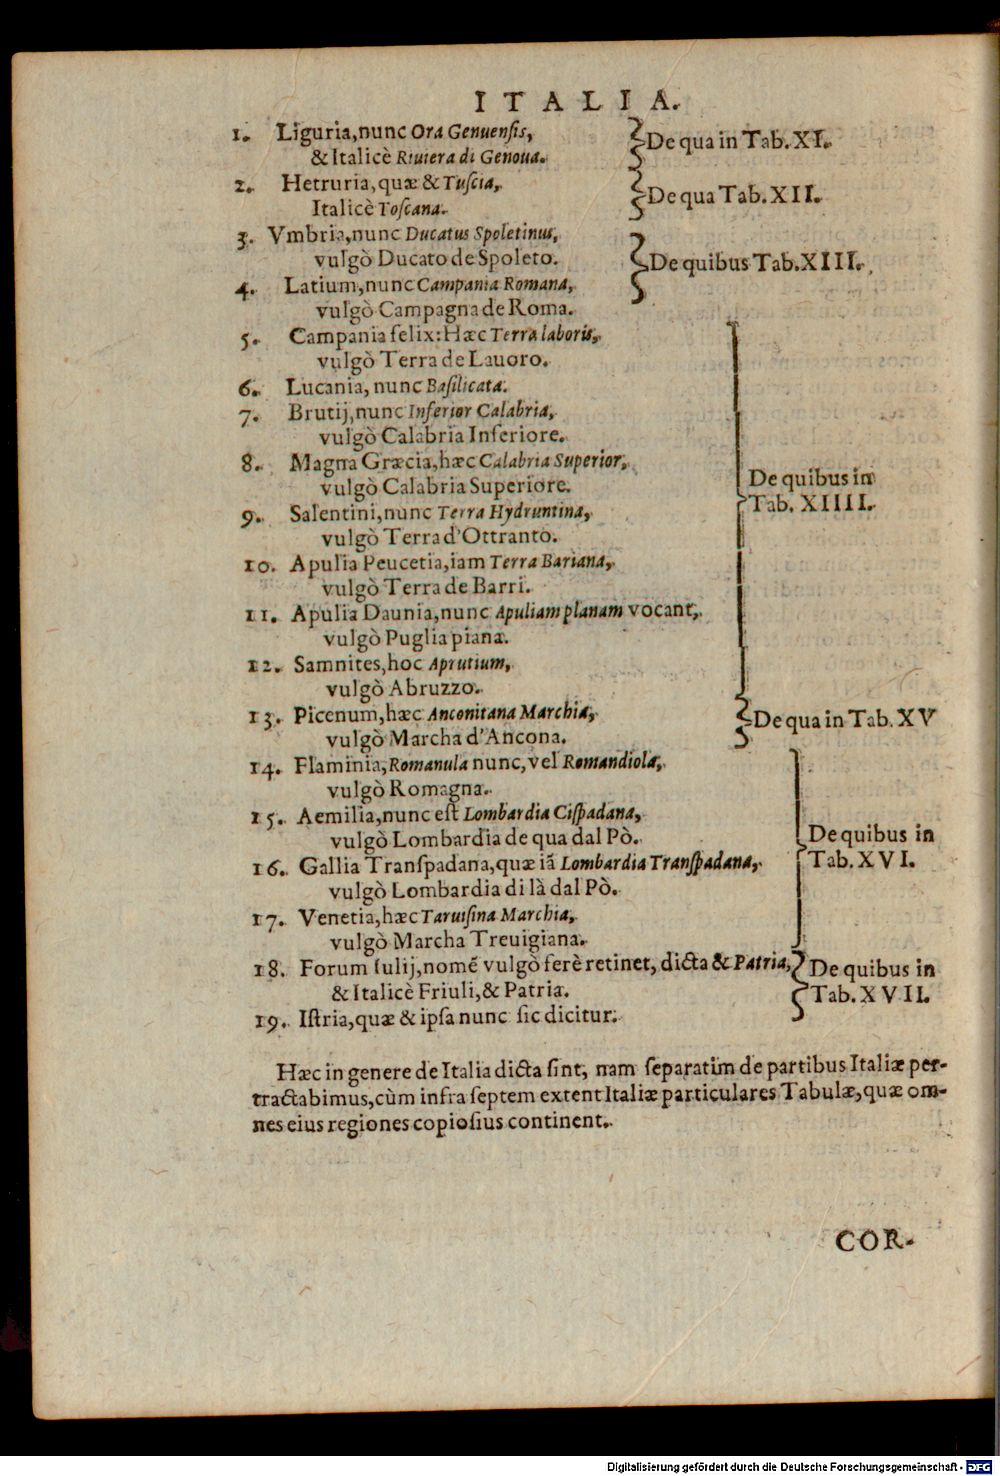 ITALIA.
1. Liguria, nunc Ora Genuensis,
& Italicè Riuiera di Genoua.
De qua in Tab. XI.
2. Hetruria, quæ & Tuscia,
Italicè Toscana.
De qua Tab. XII.
3. Vmbria, nunc Ducatus Spoletinus,
vulgò Ducato de Spoleto.
4. Latium, nunc Campania Romana,
vulgò Campagna de Roma.
De quibus Tab. XIII.
5. Campania felix: Hæc Terra laboris,
vulgò Terra de Lauoro.
6. Lucania, nunc Basilicata.
7. Brutij, nunc Inferior Calabria,
vulgò Calabria Inferiore.
8. Magna Græcia, hæc Calabria Superior,
vulgò Calabria Superiore.
9. Salentini, nunc Terra Hydruntina,
vulgò Terra d'Ottranto.
10. Apulia Peucetia, iam Terra Bariana,
vulgò Terra de Barri.
11. Apulia Daunia, nunc Apuliam planam vocant,
vulgò Puglia piana.
12. Samnites, hoc Aprutium,
vulgò Abruzzo.
De quibus in
Tab. XIIII.
13. Picenum, hæc Anconitana Marchia,
vulgò Marcha d'Ancona.
De qua in Tab. XV
14. Flaminia, Romanula nunc, vel Romandiola,
vulgò Romagna.
15. Aemilia, nunc est Lombardia Cispadana,
vulgò Lombardia de qua dal Pò.
16. Gallia Transpadana, quæ iã Lombardia Transpadana,
vulgò Lombardia di là dal Pò.
17. Venetia, hæc Taruisina Marchia,
vulgò Marcha Treuigiana.
De quibus in
Tab. XVI.
18. Forum Iulij, nomẽ vulgò ferè retinet, dicta & Patria,
& Italicè Friuli, & Patria.
19. Istria, quæ & ipsa nunc sic dicitur.
De quibus in
Tab. XVII.
Hæc in genere de Italia dicta sint, nam separatim de partibus Italiæ per-
tractabimus, cùm infra septem extent Italiæ particulares Tabulæ, quæ om-
nes eius regiones copiosius continent.
COR-
Digitalisierung gefördert durch die Deutsche Forschungsgemeinschaft - DFG